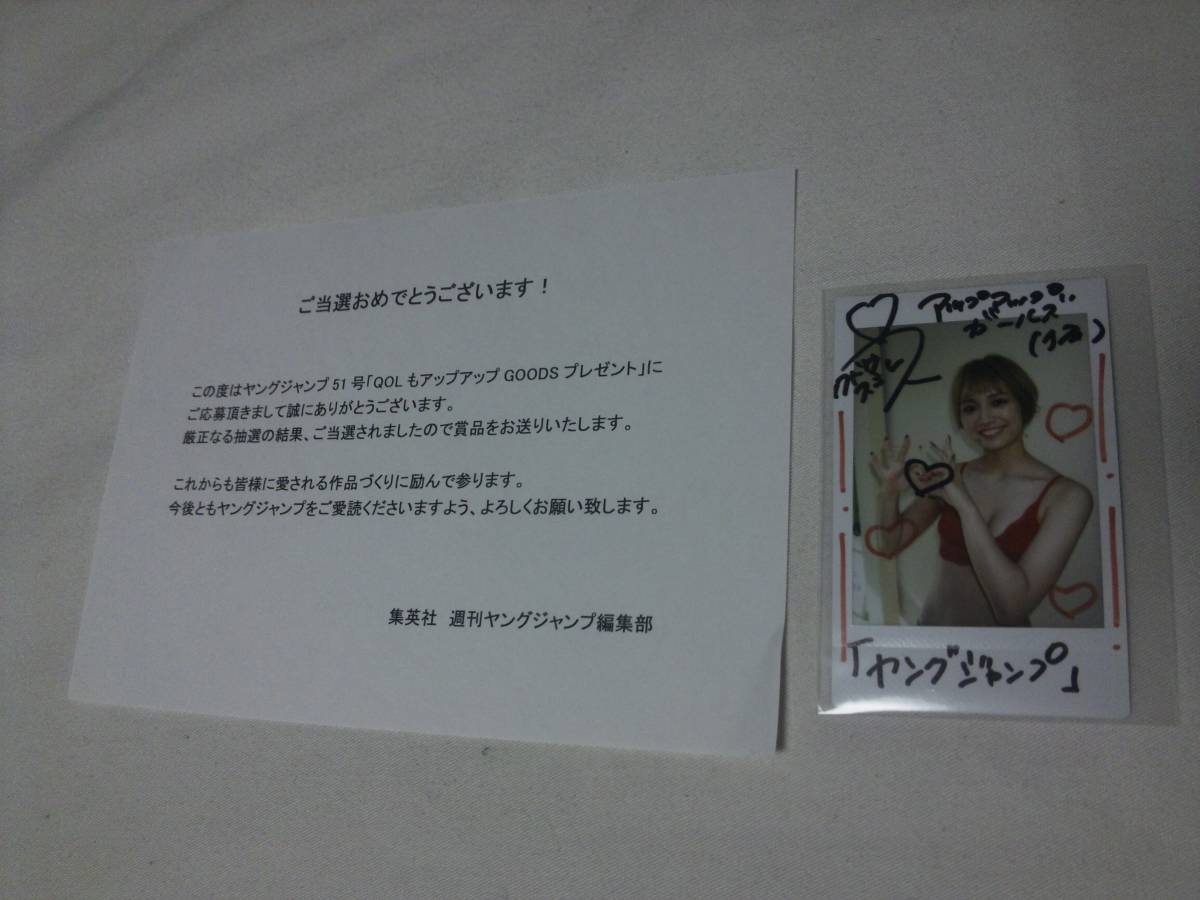 ご当選おめでとうございます！
この度はヤングジャンプ51号「QOLもアップアップGOODSプレゼント」に
ご応募頂きまして誠にありがとうございます。
厳正なる抽選の結果、ご当選されましたので賞品をお送りいたします。
これからも皆様に愛される作品づくりに励んで参ります。
今後ともヤングジャンプをご愛読くださいますよう、よろしくお願い致します。
集英社　週刊ヤングジャンプ編集部
アップアップ
ガールズ
「ヤングジャンプ」